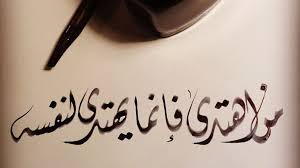 من اهتدى فإنما يهتدى لنفسه